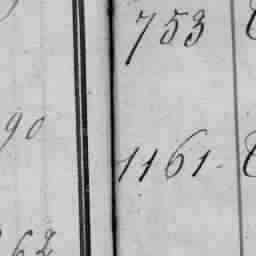 753
90
1161.
62